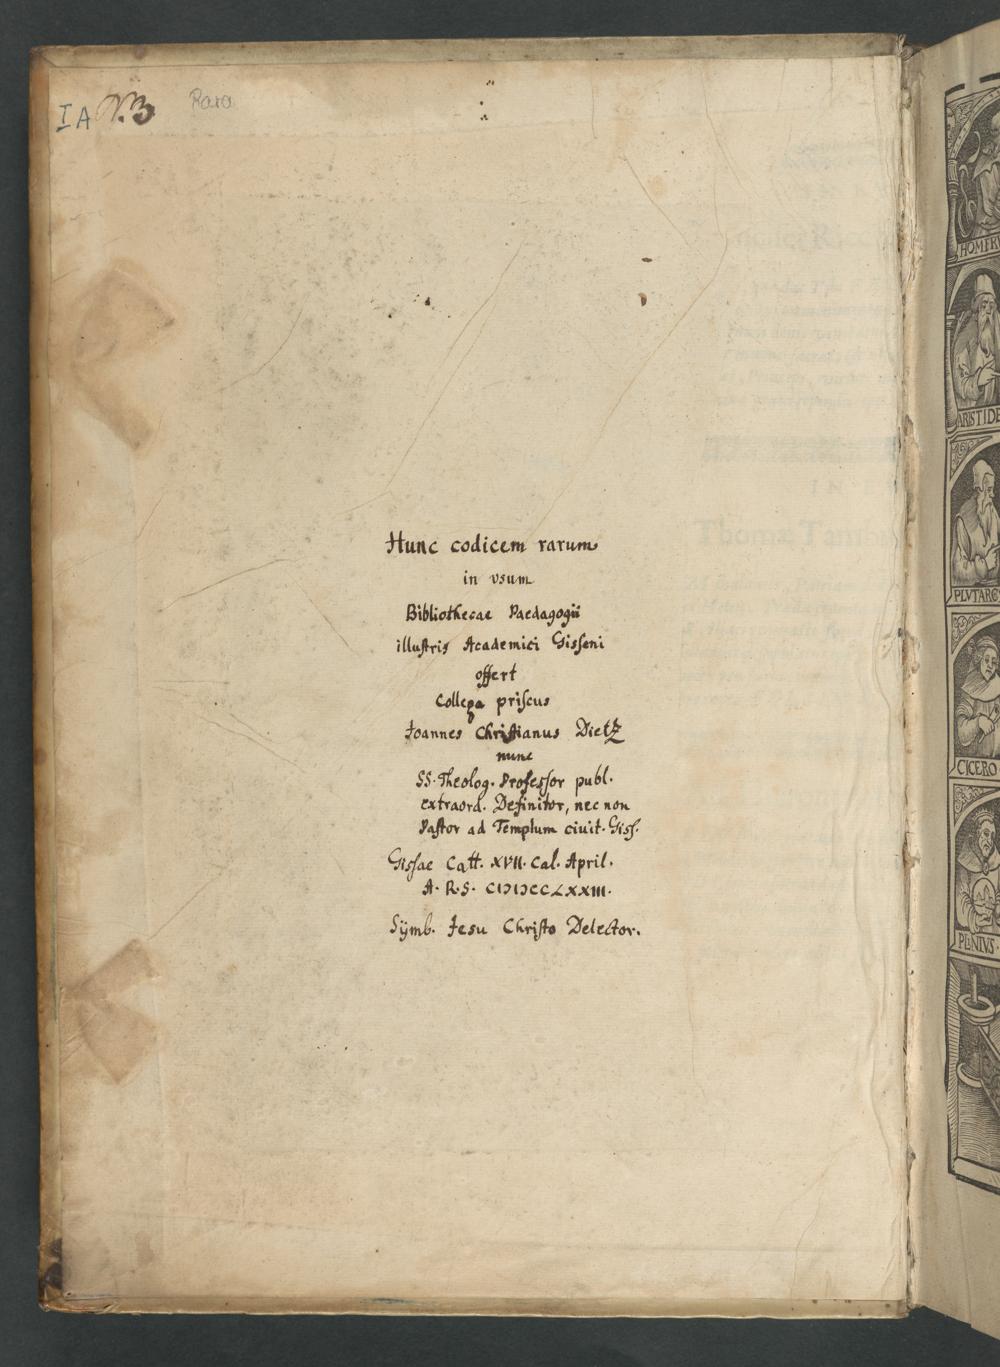 IA
Rara
Hunc codicem rarum
in vsum
Bibliothecae Paedagogii
illuſtris Academici Giſſeni
offert
Collega priſcus
Joannes Chriſtianus Dietz
nunc
SS. Theolog. Profeſſor publ.
extraord. Definitor, nec non
Paſtor ad Templum civit. Giſſ.
Giſſae Catt. XVII. Cal. April.
A. R. S. CIƆIƆCCLXXIII.
Sÿmb. Jesu Chriſto Delector.
HOMERV
ARISTIDE
PLVTARC
CICERO
PLINIVS.